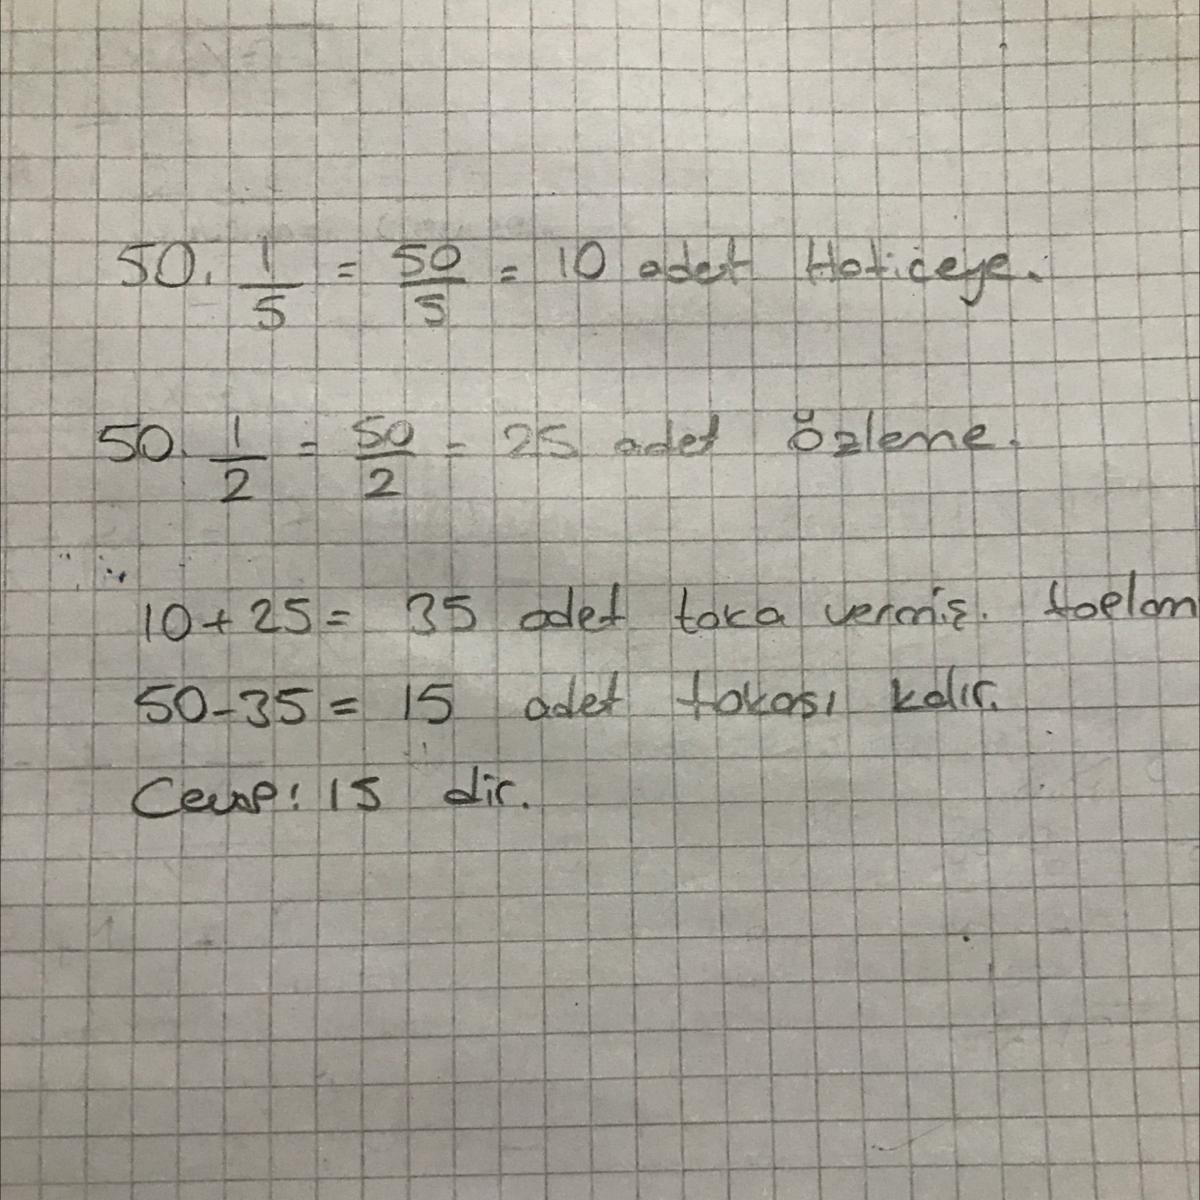 50. 1/5 = 50/5 = 10 adet Haticeye.
50. 1/2 = 50/2 = 25 adet Özleme.
10+25= 35 adet toka vermiş. toplam
50-35= 15 adet tokası kalır.
Cevap: 15 dir.